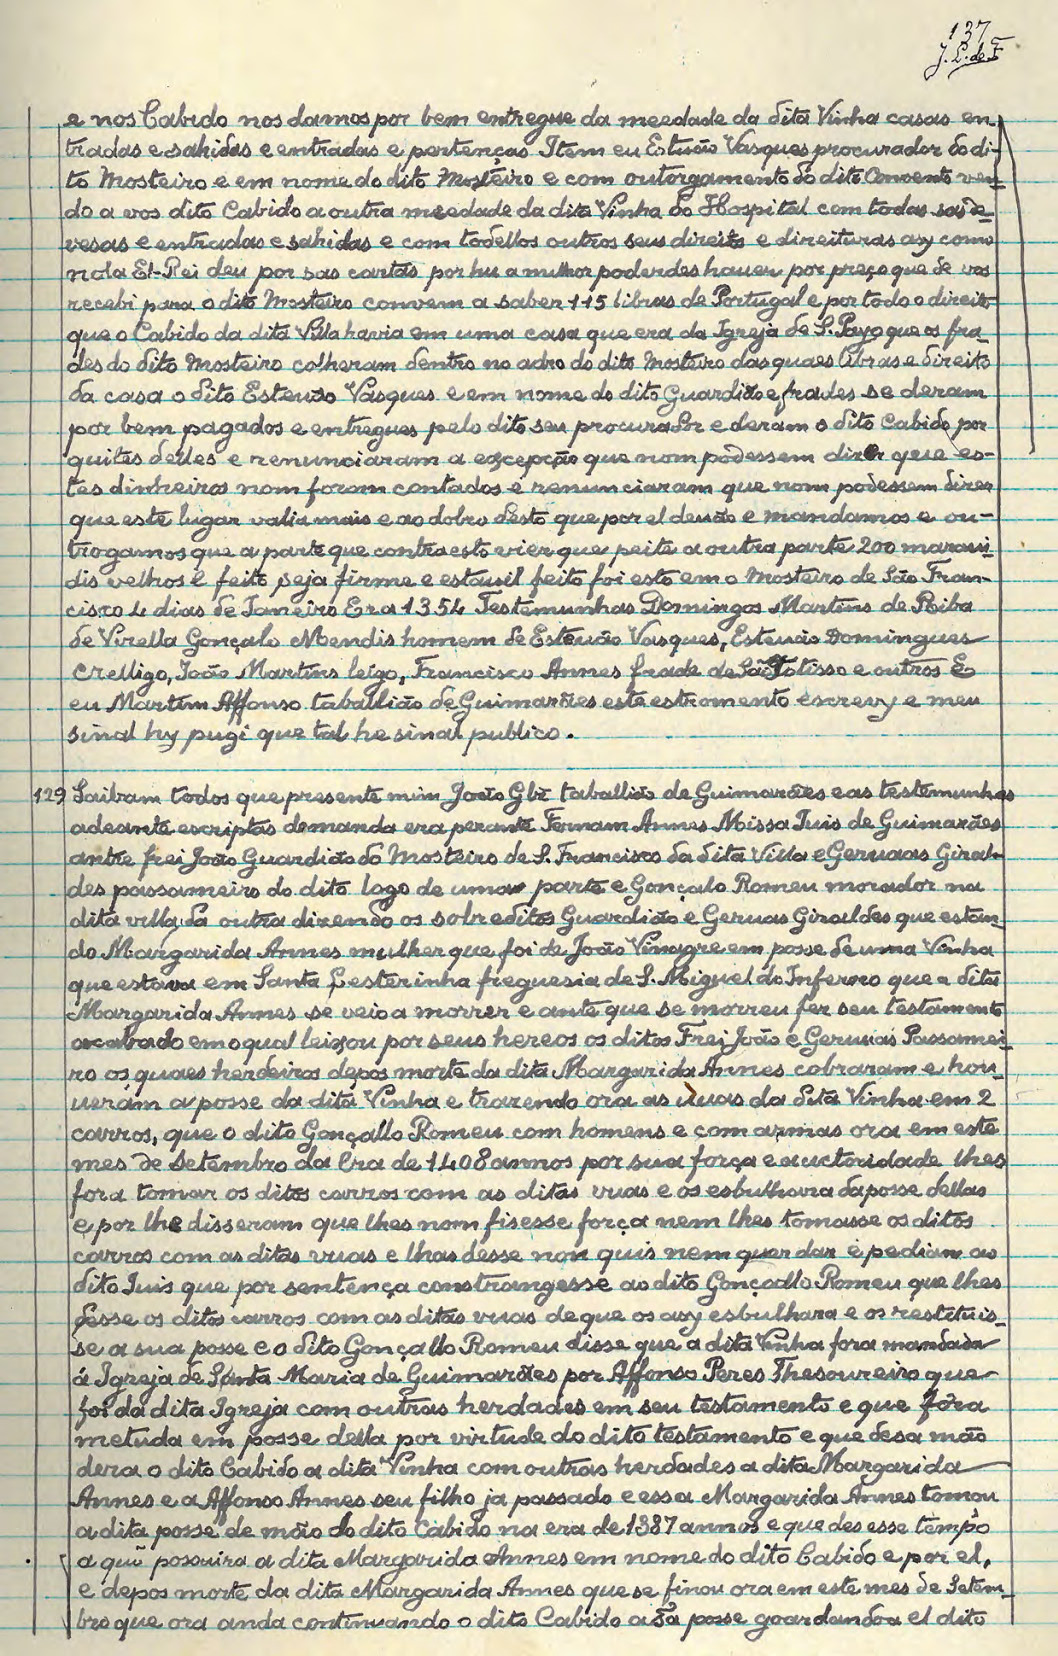 137
J. L. de F.
e nos Cabido nos damos por bem entregue da meedade da dita Vinha casas en-
tradas e sahidas e entradas e pertenças Item eu Estuão Vasques procurador do di-
to Mosteiro e em nome do dito Mosteiro e com outorgamento do dito Convento ven-
do a vos dito Cabido a outra meedade da dita Vinha do Hospital com todas sas de-
vesas e entradas e sahidas e com todellos outros seus direitos e direituras asy como
nola El-Rei deu por sas cartas por hu a milhor poderdes haver por preço que de vos
recebi para o dito Mosteiro convem a saber 115 libras de Portugal e por todo o direito
que o Cabido da dita Villa havia em uma casa que era da Igreja de S. Payo que os fra-
des do dito Mosteiro colheram dentro no adro do dito Mosteiro das quaes libras e direito
da casa o dito Estevão Vasques e em nome do dito Guardião e frades se deram
por bem pagados e entregues pelo dito seu procurador e deram o dito Cabido por
quites delles e renunciaram a excepção que nom podessem dizer que es-
tes dinheiros nom foram contados e renunciaram que nom podessem dizer
que este lugar valia mais e ao dobro desto que por el deuão e mandamos e ou-
trogamos que a parte que contra esto vier que peite a outra parte 200 maravi-
dis velhos e feito seja firme e estavil feito foi esto em o Mosteiro de São Fran-
cisco 4 dias de Janeiro Era 1354 Testemunhas Domingos Martins de Riba
de Virella Gonçalo Mendis homem de Estevão Vasques, Estevão Domingues
Crelligo, João Martins leigo, Francisco Annes frade de São e outros E
eu Martim Affonso taballião de Guimarães este estromento escrevy e meu
sinal hy pugi que tal he sinal publico.
129 Saibam todos que presente mim João Glz taballião de Guimarães e as testemunhas
adeante escriptas demanda era perante Fernam Annes Missa Juis de Guimarães
antre frei João Guardião do Mosteiro de S. Francisco da dita Villa e Gervaas Giral-
des passameiro do dito logo de uma parte e Gonçalo Romeu morador na
dita villa da outra dizendo os sobreditos Guardião e Gervas Giraldes que estan-
do Margarida Annes mulher que foi de João Vinagre em posse de uma Vinha
que estava em Santa Cesterinha freguesia de S. Miguel do Inferno que a dita
Margarida Annes se veio a morrer e ante que se morreu fez seu testamento
acabado em o qual leixou por seus hereos os ditos Frei João e Gervaas Passamei-
ro os quaes herdeiros depos morte da dita Margarida Annes cobraram e hou-
veram a posse da dita Vinha e trazendo ora as uvas da dita Vinha em 2
carros, que o dito Gonçallo Romeu com homens e com armas ora em este
mes de Setembro da Era de 1408 annos por sua força e auctoridade lhes
fora tomar os ditos carros com as ditas vuas e os esbulhava da posse dellas
e por lhe disseram que lhes nom fisesse força nem lhes tomasse os ditos
carros com as ditas vuas e lhas desse non quis nem quer dar e pediam ao
dito Juis que por sentença constrangesse ao dito Gonçallo Romeu que lhes
desse os ditos carros com as ditas vuas de que os asy esbulhara e os restituis-
se a sua posse e o dito Gonçallo Romeu disse que a dita Vinha fora mandada
á Igreja de Santa Maria de Guimarães por Affonso Peres Thesoureiro que
foi da dita Igreja com outras herdades em seu testamento e que fora
metuda em posse della por virtude do dito testamento e que desa mão
dera o dito Cabido a dita Vinha com outras herdades a dita Margarida
Annes e a Affonso Annes seu filho ja passado e essa Margarida Annes tomou
a dita posse de mão do dito Cabido na era de 1387 annos e que des esse tempo
a quõ possuira a dita Margarida Annes em nome do dito Cabido e por el,
e depos morte da dita Margarida Annes que se finou ora em este mes de Setem-
bro que ora anda continuando o dito Cabido a sã posse goardandoa el dito